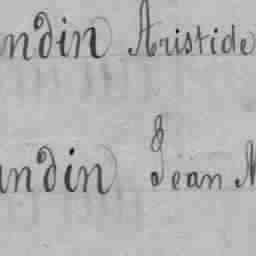 ndin Aristide
ndin Jean